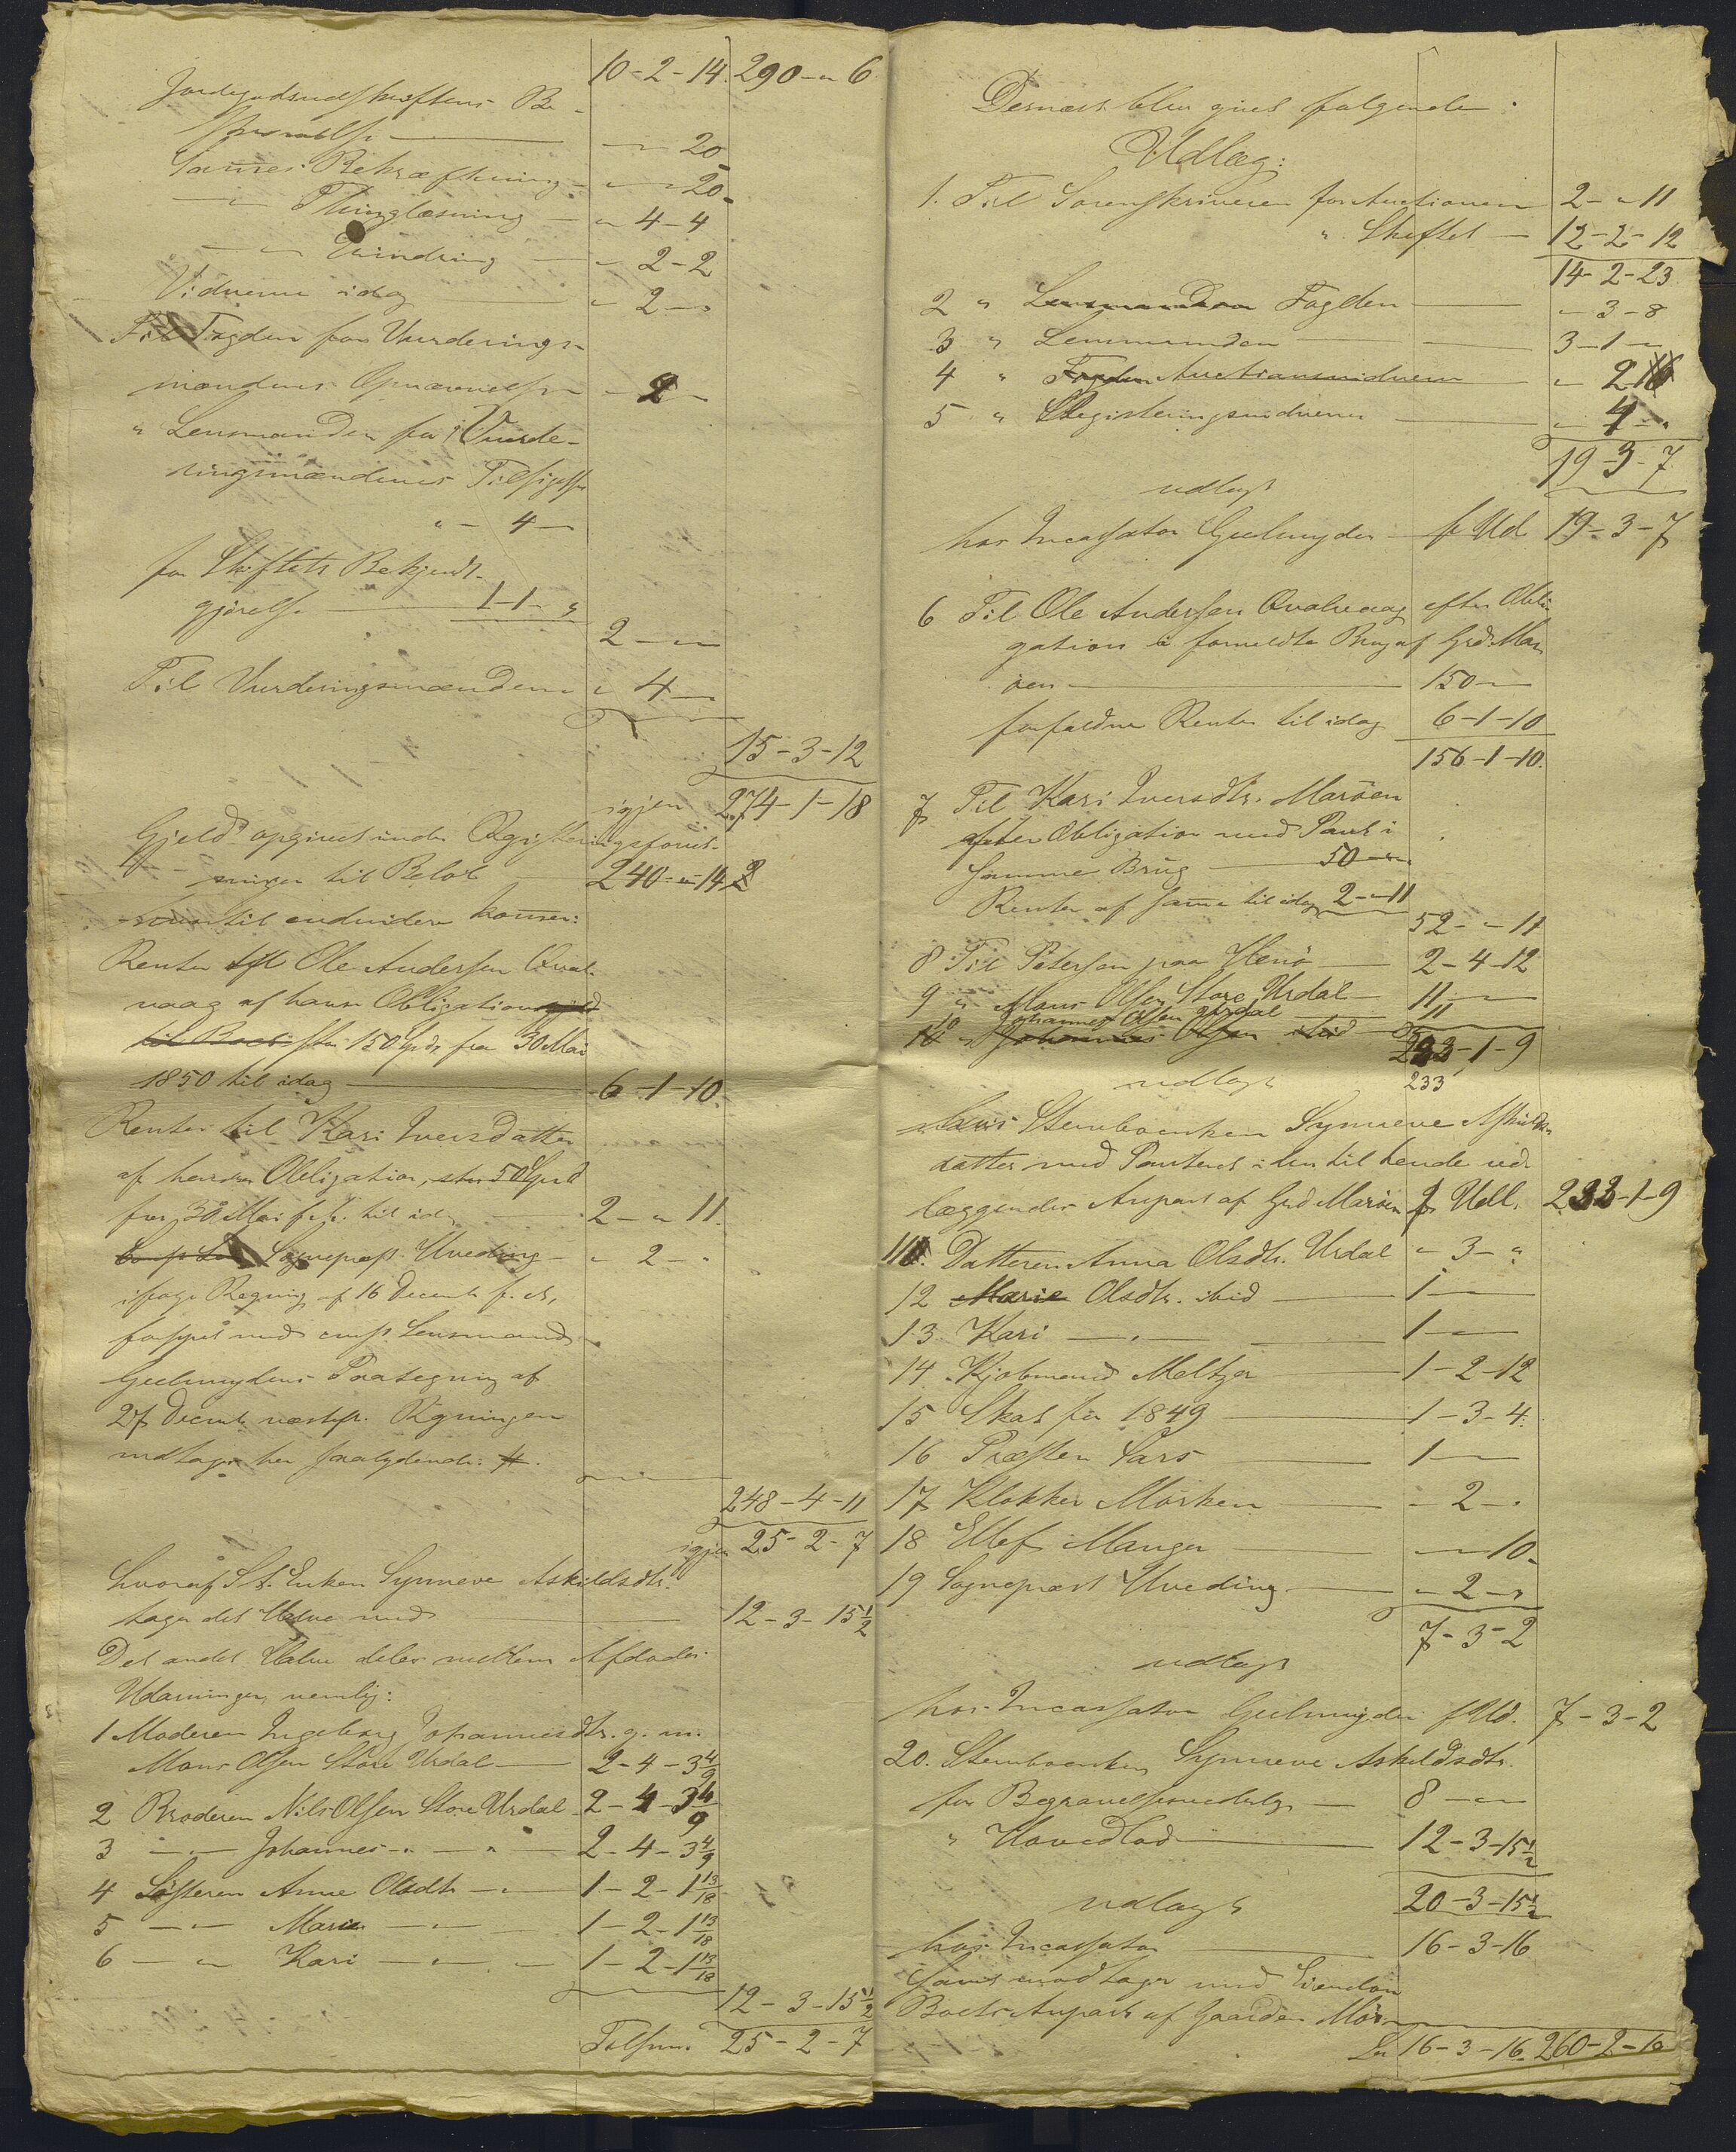 10-2-14. 290-"-6
Jordegodsudskriftens Be-
"-"-20
Sammes Bekræftning - "-"-20-
-"- Thinglæsning - "-4-4
-"- - "-2-2
Vidnerne idag - "-2-"
Til Fogden for Vurderings-
mændenes Opnævnelse "-2-
" Lensmanden for Vurde-
ringsmændenes Tilsigelse
"-4-
for Skiftets Bekjendt-
gjørelse 1-1-"
2-"-
Til Vurderingsmændene "-4-
15-3-12
igjen 274-1-18
Gjeld opgivet under Registeringsforret-
ningen til Beløb 240-"-14
endvidere kommer:
Renter til Ole Andersen Qval-
vaag af hans Obligation
stor 150 Spd. fra 30 Mai
1850 til idag 6-1-10.
Renter til Kari Iversdatter
af hendes Obligation, stor 50 Spd
fra 30 Mai f.A. til idag 2-"-11.
Sogneprest Uveding - "-2-"
ifølge Regning af 16 Decemb f. A.,
forsynet med const. Lensmand
Geelmuydens Paategning af
27 Decemb. næstefter. Regningen
indtages her saalydende:
248-4-11
igjen 25-2-7
hvoraf St. Enken Synneve Askildsdtr.
tager det Halve med 12-3-15½
Det andet Halve deles mellem Afdødes
Udarvinger, nemlig:
1 Moderen Ingeborg Johannesdtr. g. m.
Mons Olsen Store Urdal - 2-4-3 4/9
2 Broderen Nils Olsen Store Urdal - 2-4-3 4/9
3 -"- Johannes -"- -"- 2-4-3 4/9
4 Søsteren Anne Olsdtr -"- 1-2-1 13/18
5 -"- Marie -"- 1-2-1 13/18
6 -"- Kari -"- 1-2-1 13/18
12-3-15½
Tilsam. 25-2-7
Dernæst blev gjort følgende
Udlæg:
1. Til Sorenskriveren for Auctionen 2-"-11
" Skiftet - 12-2-12
14-2-23
2 " Lensmanden Fogden "-3-8
3 " Lensmanden 3-1-"
4 " Fogden Auctionsvidnerne "-2
5 " Registeringsvidnerne "-4-"
19-3-7
udlagt
hos Incassator Geelmuyden for Ud. 19-3-7
6 Til Ole Andersen Qvalvaag efter Obli-
gation i formeldte Brug af Grd. Mar-
øen 150-"-
forfaldne Renter til idag 6-1-10
156-1-10.
7 Til Kari Iversdtr. Marøen
efter Obligation med Pant i
samme Brug 50-"-
Renter af samme til idag 2-"-11
52-"-11
8 Til Petersen paa Henø 2-4-12
9 " Mons Olsen Store Urdal 11-"-
10 " Johannes Olsen Urdal 11
Johannes Olsen ibid
233-1-9
udlagt 233
hos Stervboenken Synneve Askilds-
datter med Panteret i den til hende ud-
læggendes Anpart af Grd Marøen for Udl. 233-1-9
11. Datteren Anna Olsdtr. Urdal "-3-"
12 Marie Olsdtr. ibid 1-"-
13 Kari -"- 1-"-
14. Kjøbmand Meltzer 1-2-12
15 Skat for 1849 1-3-4.
16 Præsten Sars 1-"-
17 Klokker Mørken "-2-"
18 Ellef Manger "-"-10-
19 Sogneprest Uveding "-2-"
7-3-2
udlagt
hos Incassator Geelmuyden f Ud. 7-3-2
20. Stervboenken Synneve Askildsdtr.
for Begravelsesudlæg 8-"-
" Hovedlod 12-3-15½
udlagt 20-3-15½
hos Incassator 16-3-16
samt modtager med Eiendom
Boets Anpart af Gaarden Mar-
Lat. 16-3-16. 260-2-16